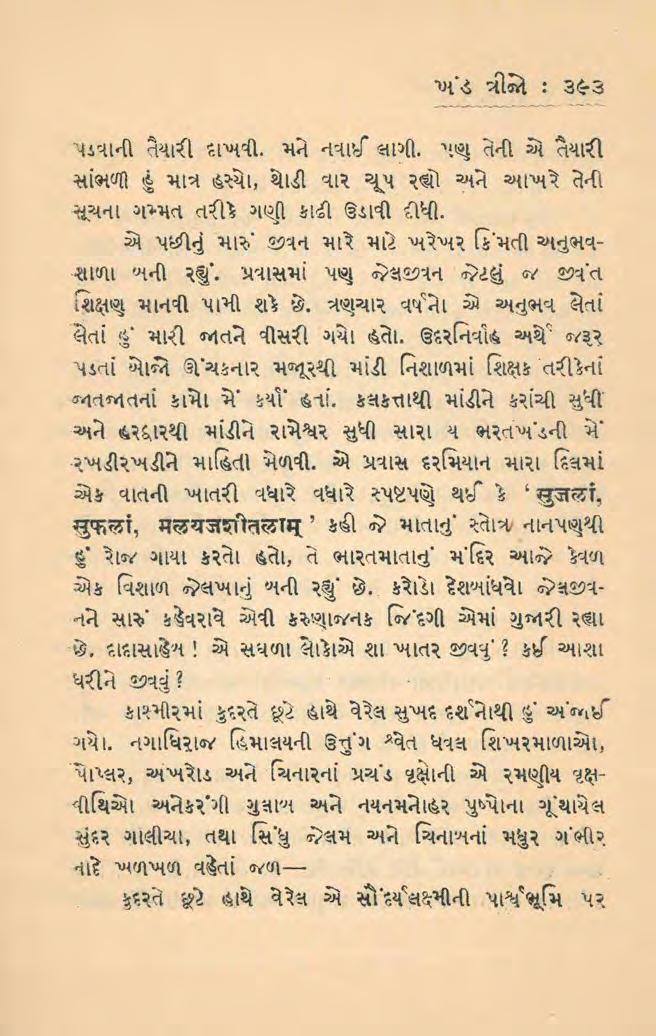 ખંડ ત્રીજો : ૩૯૩
પડવાની તૈયારી દાખવી. મને નવાઈ લાગી. પણ તેની એ તૈયારી
સાંભળી હું માત્ર હસ્યો, થોડી વાર ચૂપ રહ્યો અને આખરે તેની
સૂચના ગમ્મત તરીકે ગણી કાઢી ઉડાવી દીધી.
એ પછીનું મારું જીવન મારે માટે ખરેખર કિંમતી અનુભવ-
શાળા બની રહ્યું. પ્રવાસમાં પણ જેલજીવન જેટલું જ જીવંત
શિક્ષણ માનવી પામી શકે છે. ત્રણચાર વર્ષનો એ અનુભવ લેતાં
લેતાં હું મારી જાતને વીસરી ગયો હતો. ઉદરનિર્વાહ અર્થે જરૂર
પડતાં બોજો ઊંચકનાર મજૂરથી માંડી નિશાળમાં શિક્ષક તરીકેનાં
જાતજાતનાં કામો મેં કર્યાં હતાં. કલકત્તાથી માંડીને કરાંચી સુધી
અને હરદ્વારથી માંડીને રામેશ્વર સુધી સારા ય ભરતખંડની મેં
રખડીરખડીને માહિતી મેળવી. એ પ્રવાસ દરમિયાન મારા દિલમાં
એક વાતની ખાતરી વધારે વધારે સ્પષ્ટપણે થઈ કે ‘ सुजलां,
सुफलां, मलयजशीतलाम् ’ કહી જે માતાનું સ્તોત્ર નાનપણથી
હું રોજ ગાયા કરતો હતો, તે ભારતમાતાનું મંદિર આજે કેવળ
એક વિશાળ જેલખાનું બની રહ્યું છે. કરોડો દેશબાંધવો જેલજીવ-
નને સારું કહેવરાવે એવી કરુણાજનક જિંદગી એમાં ગુજારી રહ્યા
છે. દાદાસાહેબ ! એ સઘળા લોકોએ શા ખાતર જીવવું ? કઈ આશા
ધરીને જીવવું ?
કાશ્મીરમાં કુદરતે છૂટે હાથે વેરેલ સુખદ દર્શનોથી હું અંજાઈ
ગયો. નગાધિરાજ હિમાલયની ઉત્તુંગ શ્વેત ધવલ શિખરમાળાઓ,
પોપ્લર, અખરોડ અને ચિનારનાં પ્રચંડ વૃક્ષોની એ રમણીય વૃક્ષ-
વીથિઓ અનેકરંગી ગુલાબ અને નયનમનોહર પુષ્પોના ગૂંથાયેલ
સુંદર ગાલીચા, તથા સિંધુ જેલમ અને ચિનાબનાં મધુર ગંભીર
નાદે ખળખળ વહેતાં જળ—
કુદરતે છૂટે હાથે વેરેલ એ સૌંદર્યલક્ષ્મીની પાર્શ્વભૂમિ પર